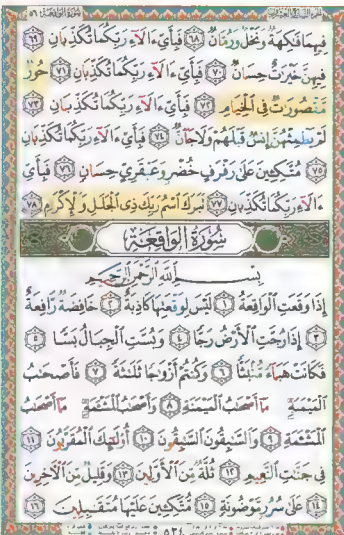 سُورَةُ الوَاقِعَةِ ٥٦
فِيهِمَا فَٰكِهَةٌ وَنَخْلٌ وَرُمَّانٌ ٦٨ فَبِأَيِّ ءَالَآءِ رَبِّكُمَا تُكَذِّبَانِ ٦٩
فِيهِنَّ خَيْرَٰتٌ حِسَانٌ ٧٠ فَبِأَيِّ ءَالَآءِ رَبِّكُمَا تُكَذِّبَانِ ٧١ حُورٌ
مَّقْصُورَٰتٌ فِى ٱلْخِيَامِ ٧٢ فَبِأَيِّ ءَالَآءِ رَبِّكُمَا تُكَذِّبَانِ ٧٣
لَمْ يَطْمِثْهُنَّ إِنسٌ قَبْلَهُمْ وَلَا جَآنٌّ ٧٤ فَبِأَيِّ ءَالَآءِ رَبِّكُمَا تُكَذِّبَانِ
٧٥ مُتَّكِـِٔينَ عَلَىٰ رَفْرَفٍ خُضْرٍ وَعَبْقَرِىٍّ حِسَانٍ ٧٦ فَبِأَيِّ
ءَالَآءِ رَبِّكُمَا تُكَذِّبَانِ ٧٧ تَبَٰرَكَ ٱسْمُ رَبِّكَ ذِى ٱلْجَلَٰلِ وَٱلْإِكْرَامِ ٧٨
سُورَةُ الوَاقِعَةِ
بِسْمِ ٱللَّهِ ٱلرَّحْمَٰنِ ٱلرَّحِيمِ
إِذَا وَقَعَتِ ٱلْوَاقِعَةُ ١ لَيْسَ لِوَقْعَتِهَا كَاذِبَةٌ ٢ خَافِضَةٌ رَّافِعَةٌ
٣ إِذَا رُجَّتِ ٱلْأَرْضُ رَجًّا ٤ وَبُسَّتِ ٱلْجِبَالُ بَسًّا ٥
فَكَانَتْ هَبَآءً مُّنۢبَثًّا ٦ وَكُنتُمْ أَزْوَٰجًا ثَلَٰثَةً ٧ فَأَصْحَٰبُ
ٱلْمَيْمَنَةِ مَآ أَصْحَٰبُ ٱلْمَيْمَنَةِ ٨ وَأَصْحَٰبُ ٱلْمَشْـَٔمَةِ مَآ أَصْحَٰبُ
ٱلْمَشْـَٔمَةِ ٩ وَٱلسَّٰبِقُونَ ٱلسَّٰبِقُونَ ١٠ أُو۟لَٰٓئِكَ ٱلْمُقَرَّبُونَ ١١
فِى جَنَّٰتِ ٱلنَّعِيمِ ١٢ ثُلَّةٌ مِّنَ ٱلْأَوَّلِينَ ١٣ وَقَلِيلٌ مِّنَ ٱلْـَٔاخِرِينَ
١٤ عَلَىٰ سُرُرٍ مَّوْضُونَةٍ ١٥ مُّتَّكِـِٔينَ عَلَيْهَا مُتَقَٰبِلِينَ ١٦
٥٣٤